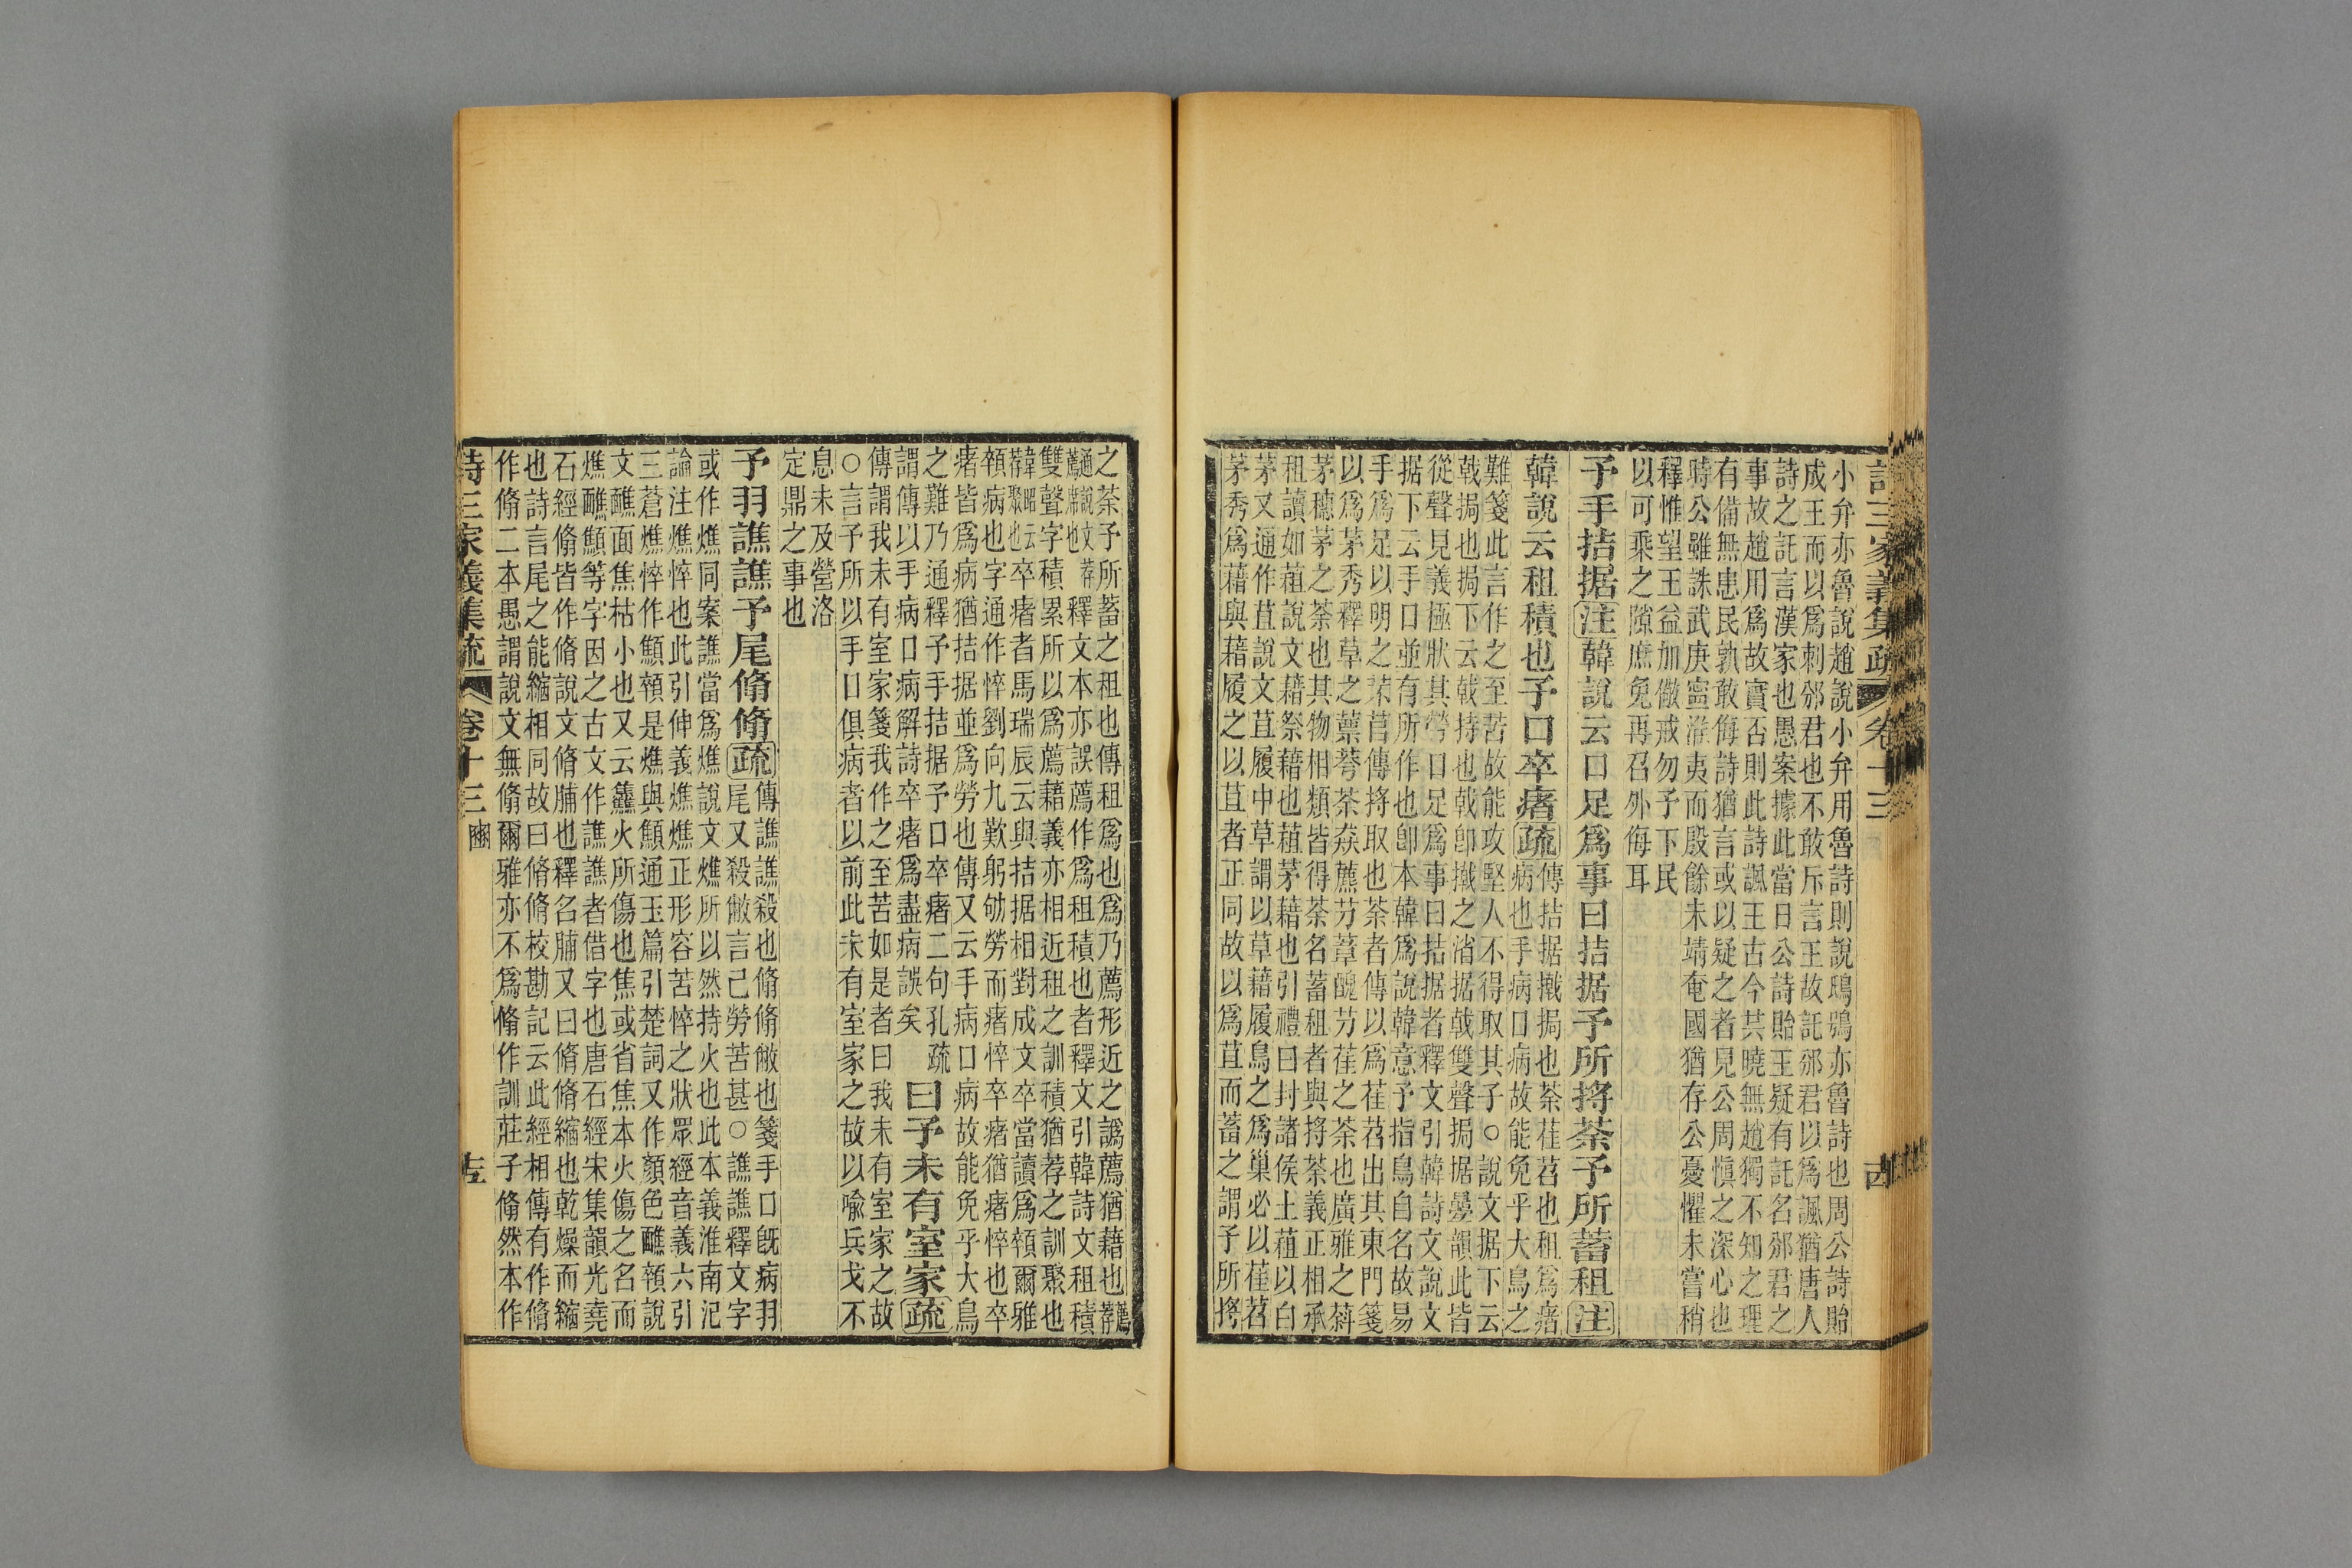 詩三家義集疏 卷十三
小弁亦魯說趙說小弁用魯詩則說鴟鴞亦魯詩也周公詩貽
成王而以爲刺邠君也不敢斥言王故託邠君以爲諷猶唐人
詩之託言漢家也愚案據此當日公詩貽王疑有託名邠君之
事故趙用爲故實否則此詩諷王古今其曉無趙獨不知之理
有備無患民孰敢侮詩猶言或以疑之者見公周愼之深心也
時公雖誅武庚寧淮夷而殷餘未靖奄國猶存公憂懼未嘗稍
釋惟望王益加儆戒勿予下民
以可乘之隙庶免再召外侮耳
予手拮据注韓說云口足爲事曰拮据予所捋荼予所蓄租注
韓說云租積也予口卒瘏疏傳拮据撠挶也荼萑苕也租爲瘏
病也手病口病故能免乎大鳥之
難箋此言作之至苦故能攻堅人不得取其子○說文据下云
戟挶也挶下云戟持也戟卽撠之渻据戟雙聲挶据曡韻此皆
從聲見義極狀其勞口足爲事曰拮据者釋文引韓詩文說文
据下云手口並有所作也卽本韓爲說韓意予指鳥自名故易
手爲足以明之芣苢傳捋取也荼者傳以爲萑苕出其東門箋
以爲茅秀釋草之蔈荂荼猋藨芀葦醜芀萑之荼也廣雅之䔑
茅穗茅之荼也其物相類皆得荼名蓄租者與捋荼義正相承
租讀如蒩說文藉祭藉也蒩茅藉也引禮曰封諸侯土蒩以白
茅又通作苴說文苴履中草謂以草藉履鳥之爲巢必以萑苕
茅秀爲藉與藉履之以苴者正同故以爲苴而蓄之謂予所捋
之荼予所蓄之租也傳租爲也爲乃薦形近之譌薦猶藉也薦荐
通說文荐薦席也釋文本亦誤薦作爲租積也者釋文引韓詩文租積
雙聲字積累所以爲薦藉義亦相近租之訓積猶荐之訓聚也
韓昭云荐聚也卒瘏者馬瑞辰云與拮据相對成文卒當讀爲顇爾雅
顇病也字通作悴劉向九歎躬劬勞而瘏悴卒瘏猶瘏悴也卒
瘏皆爲病猶拮据並爲勞也傳又云手病口病故能免乎大鳥
之難乃通釋予手拮据予口卒瘏二句孔疏
謂傳以手病口病解詩卒瘏爲盡病誤矣曰予未有室家疏
傳謂我未有室家箋我作之至苦如是者曰我未有室家之故
○言予所以手口俱病者以前此未有室家之故以喩兵戈不
息未及營洛
定鼎之事也
予羽譙譙予尾翛翛疏傳譙譙殺也翛翛敝也箋手口旣病羽
尾又殺敝言己勞苦甚○譙譙釋文字
或作燋同案譙當爲燋說文燋所以然持火也此本義淮南氾
論注燋悴也此引伸義燋燋正形容苦悴之狀眾經音義六引
三蒼燋悴作顦顇是燋與顦通玉篇引楚詞又作顏色醮顇說
文醮面焦枯小也又云𤓪火所傷也焦或省焦本火傷之名而
燋醮顦等字因之古文作譙譙者借字也唐石經宋集韻光堯
石經翛皆作脩說文脩脯也釋名脯又曰脩脩縮也乾燥而縮
也詩言尾之能縮相同故曰脩脩校勘記云此經相傳有作脩
作翛二本愚謂說文無翛爾雅亦不爲翛作訓莊子翛然本作
詩三家義集疏 卷十三 豳